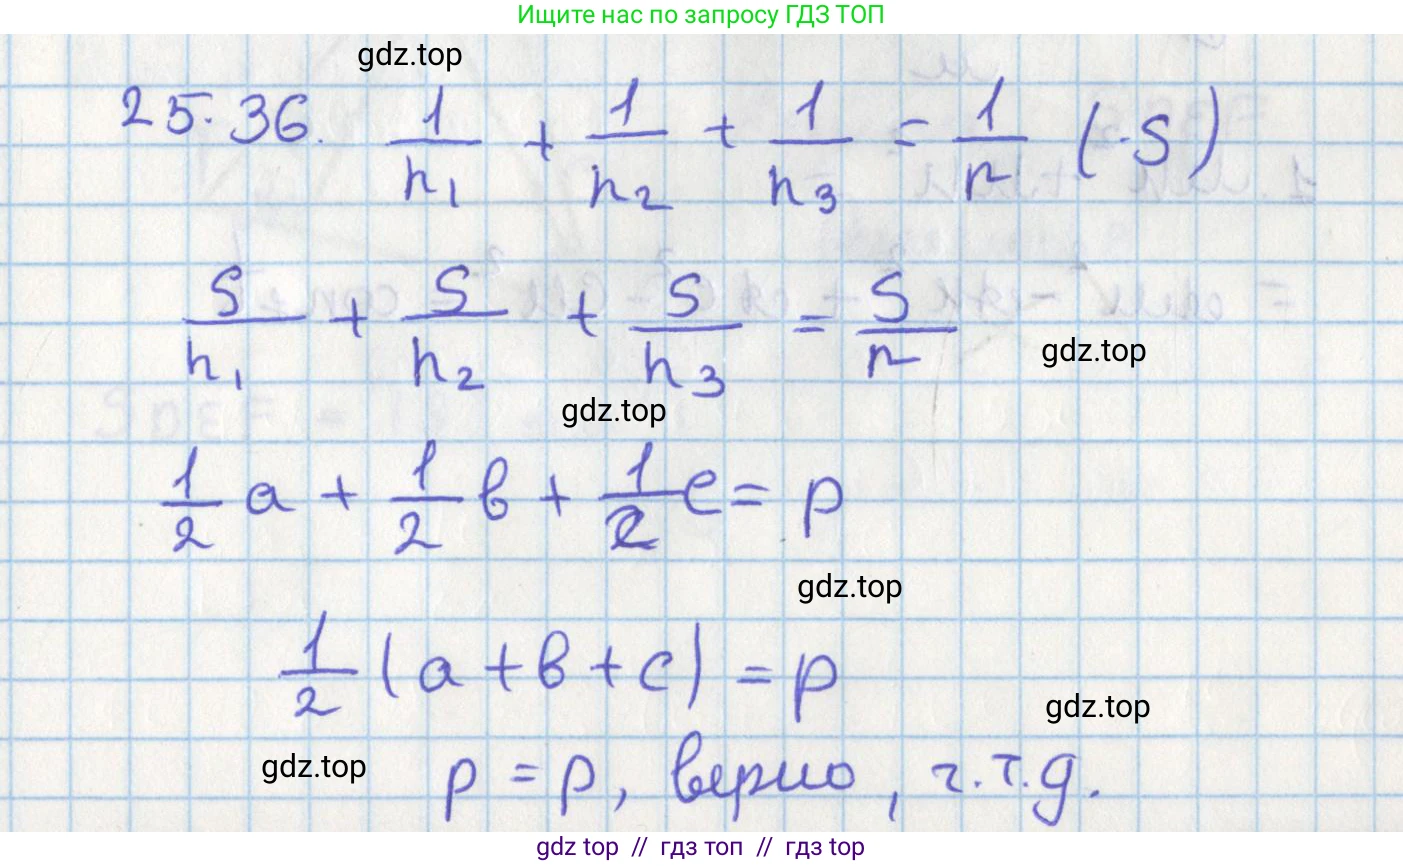 Ищите нас по запросу ГДЗ ТОП
gdz.top
25.36. 1/h₁ + 1/h₂ + 1/h₃ = 1/r (·S)
S/h₁ + S/h₂ + S/h₃ = S/r
gdz.top
gdz.top
1/2 a + 1/2 b + 1/2 c = p
gdz.top
1/2 (a + b + c) = p
gdz.top
gdz.top
p = p, верно, ч.т.д.
gdz top // гдз топ // гдз top